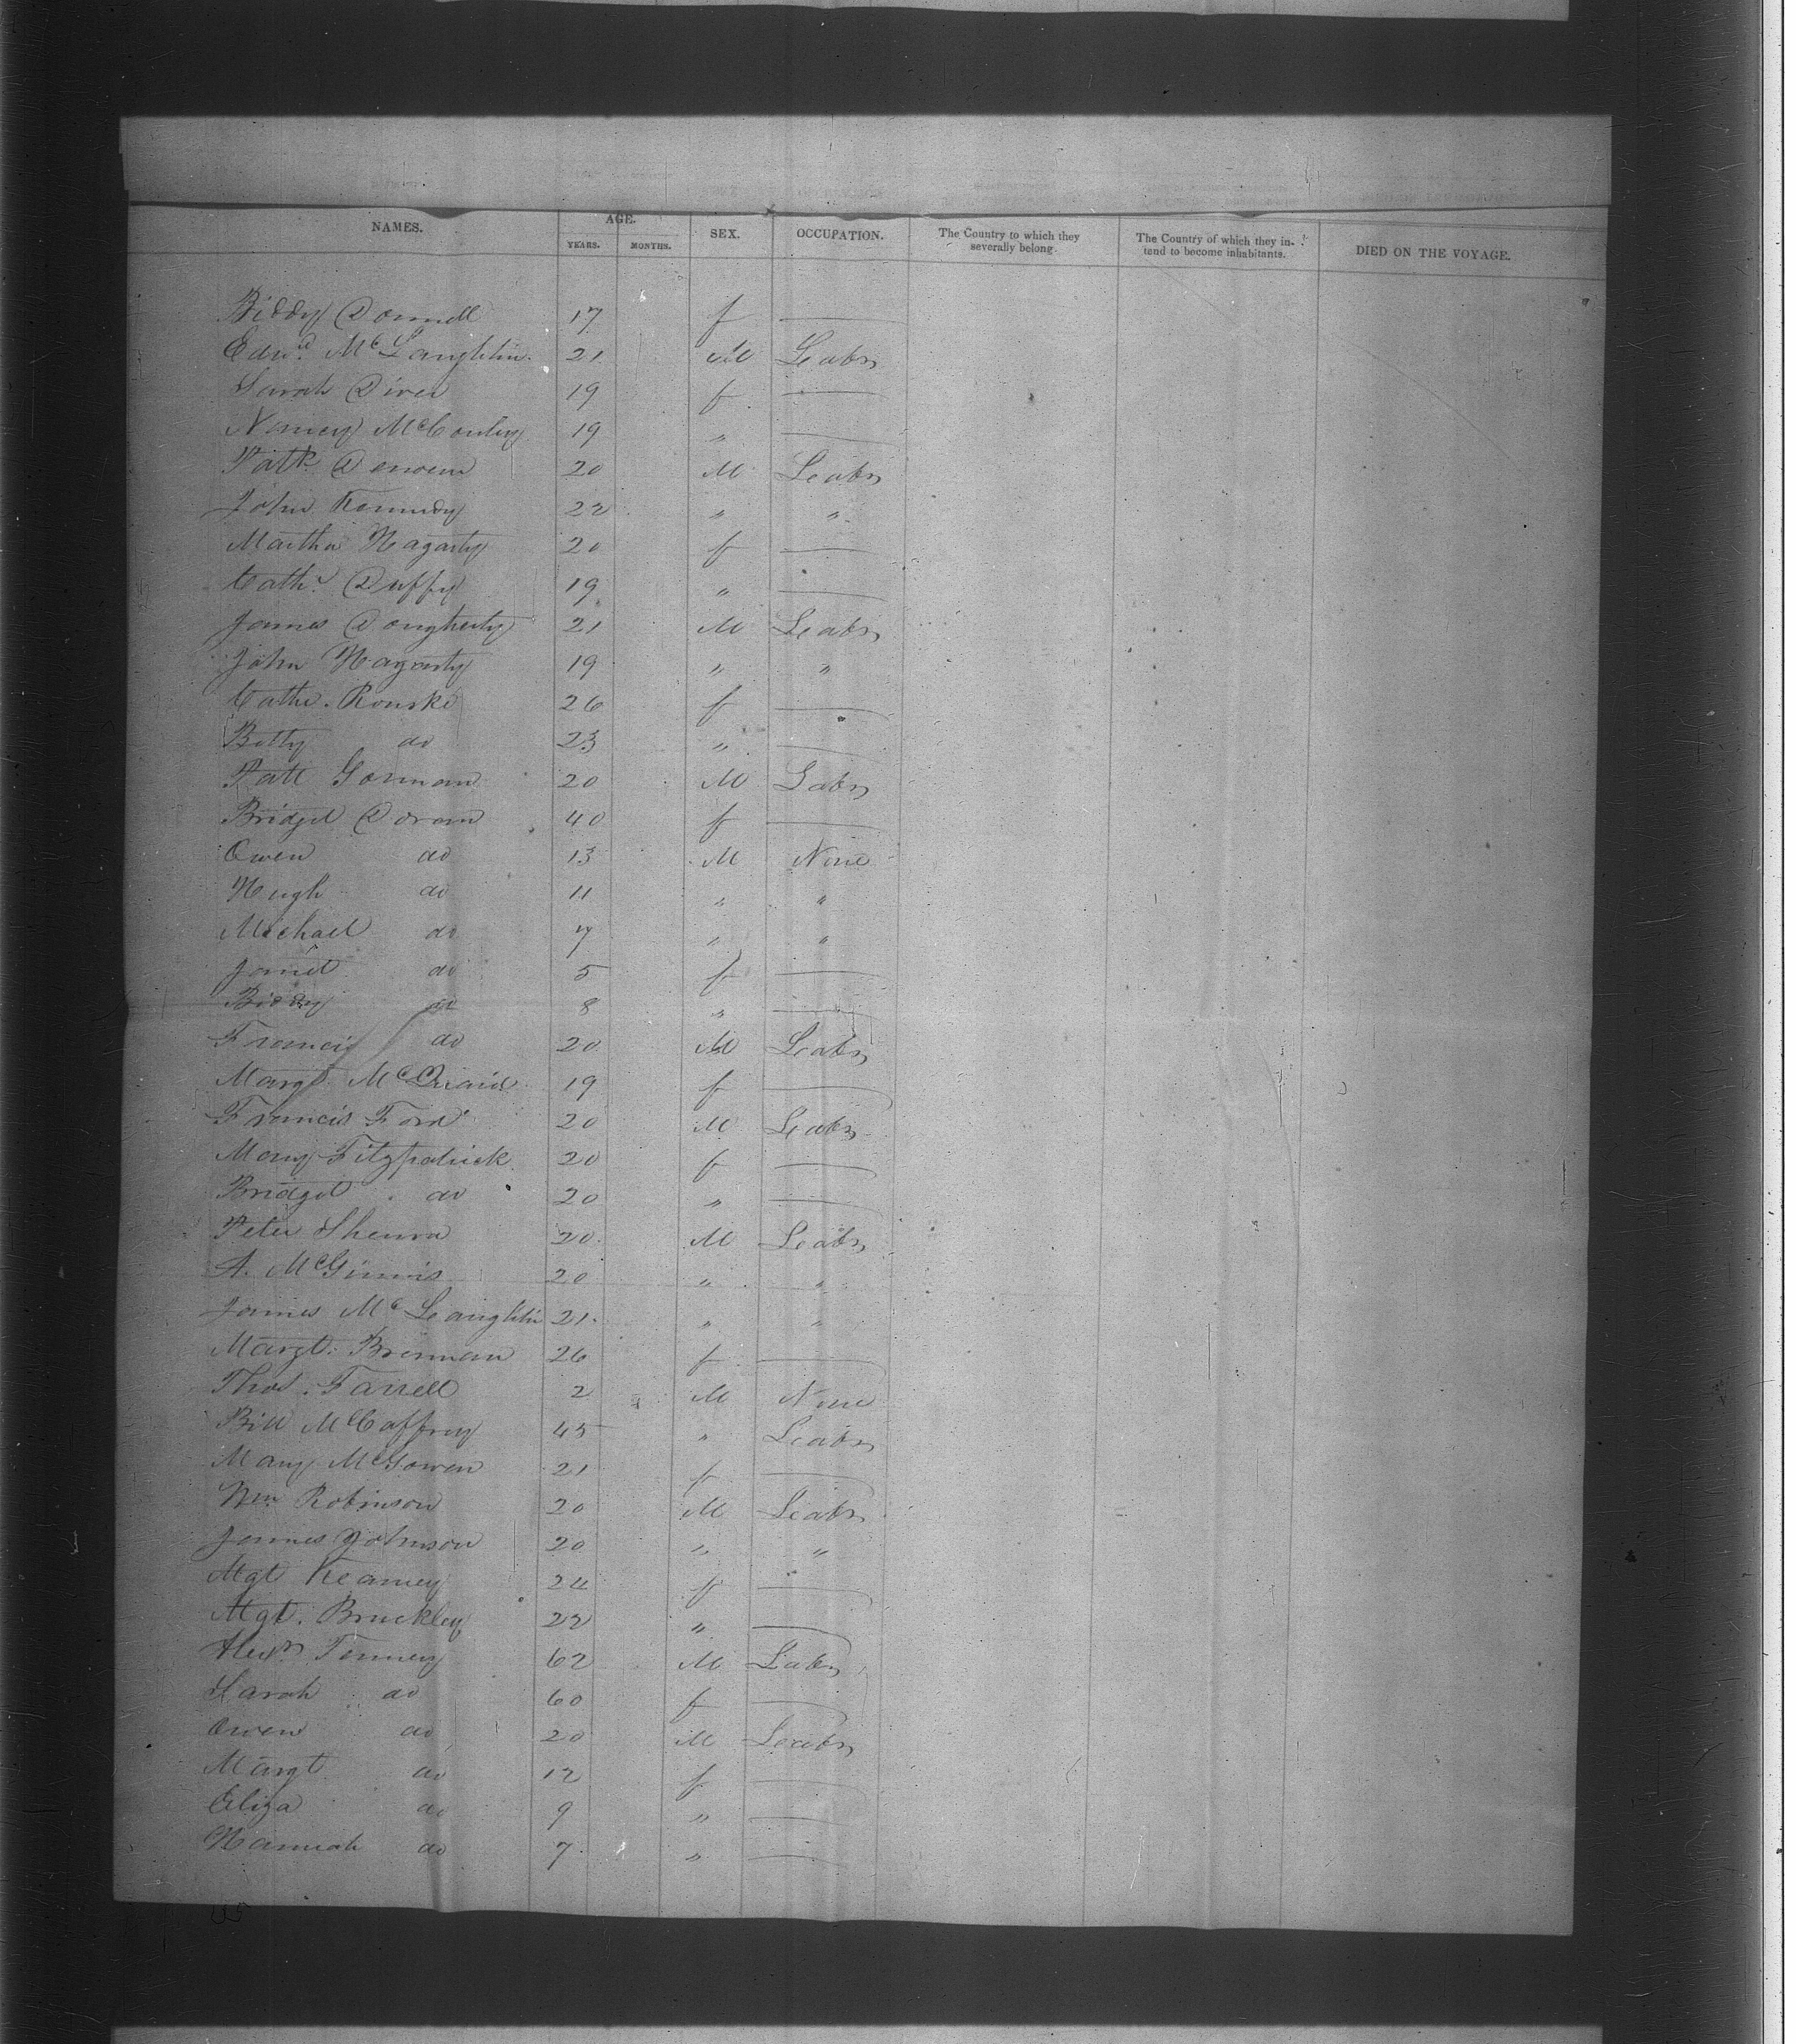 NAMES. AGE. SEX. OCCUPATION. The Country to which they severally belong. The Country of which they intend to become inhabitants. DIED ON THE VOYAGE.
YEARS. MONTHS.
Biddy Donnell 17 f —
Edwd. McLaughlin 21 M Labr
Sarah Diver 19 f —
Nancy McConley 19 " —
Patk. 20 M Labr
John Kennedy 22 " "
Martha Hagarty 20 f —
Cathe. Duffy 19 " —
James Dougherty 21 M Labr
John Hagarty 19 " "
Cathe. Rourke 26 f —
Betty do 23 " —
Patk Gorman 20 M Labr
Bridget Doran 40 f —
Owen do 13 M None
Hugh do 11 " "
Michael do 7 " "
Janet do 5 f —
Biddy do 8 " —
Francis do 20 M Labr
Margt. McQuaid 19 f —
Francis Ford 20 M Labr
Mary Fitzpatrick 20 f —
Bridget do 20 " —
Peter 20 M Labr
A. McGinnis 20 " "
James McLaughlin 21 " "
Margt. Brennan 26 f —
Thos. Farrell 2 M None
Bill McCaffrey 45 " Labr
Mary McGowen 21 f —
Wm Robinson 20 M Labr
James Johnson 20 " "
Mgt Kearney 24 f —
Mgt. Bruckley 22 " —
Alexr. Tenney 62 M Labr
Sarah do 60 f —
Owen do 20 M Labr
Margt do 12 f —
Eliza do 9 " —
Hannah do 7 " —